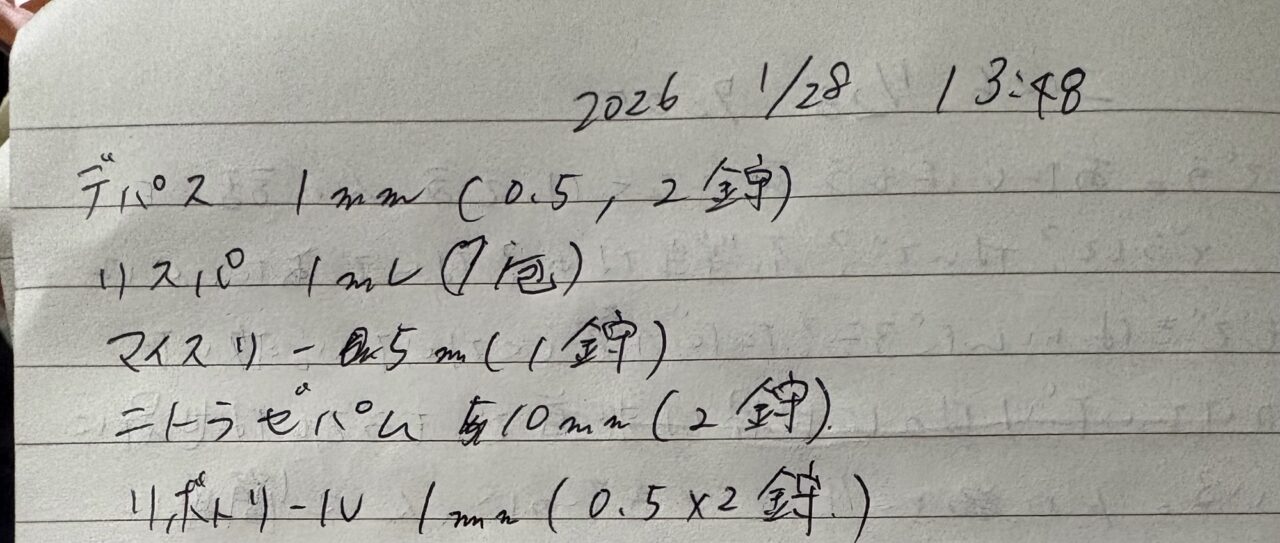 2026 1/28 13:48
デパス 1mm (0.5, 2錠)
リスパ 1mL (1包)
マイスリー 5m (1錠)
ニトラゼパム 10mm (2錠).
リボトリール 1mm (0.5×2錠.)